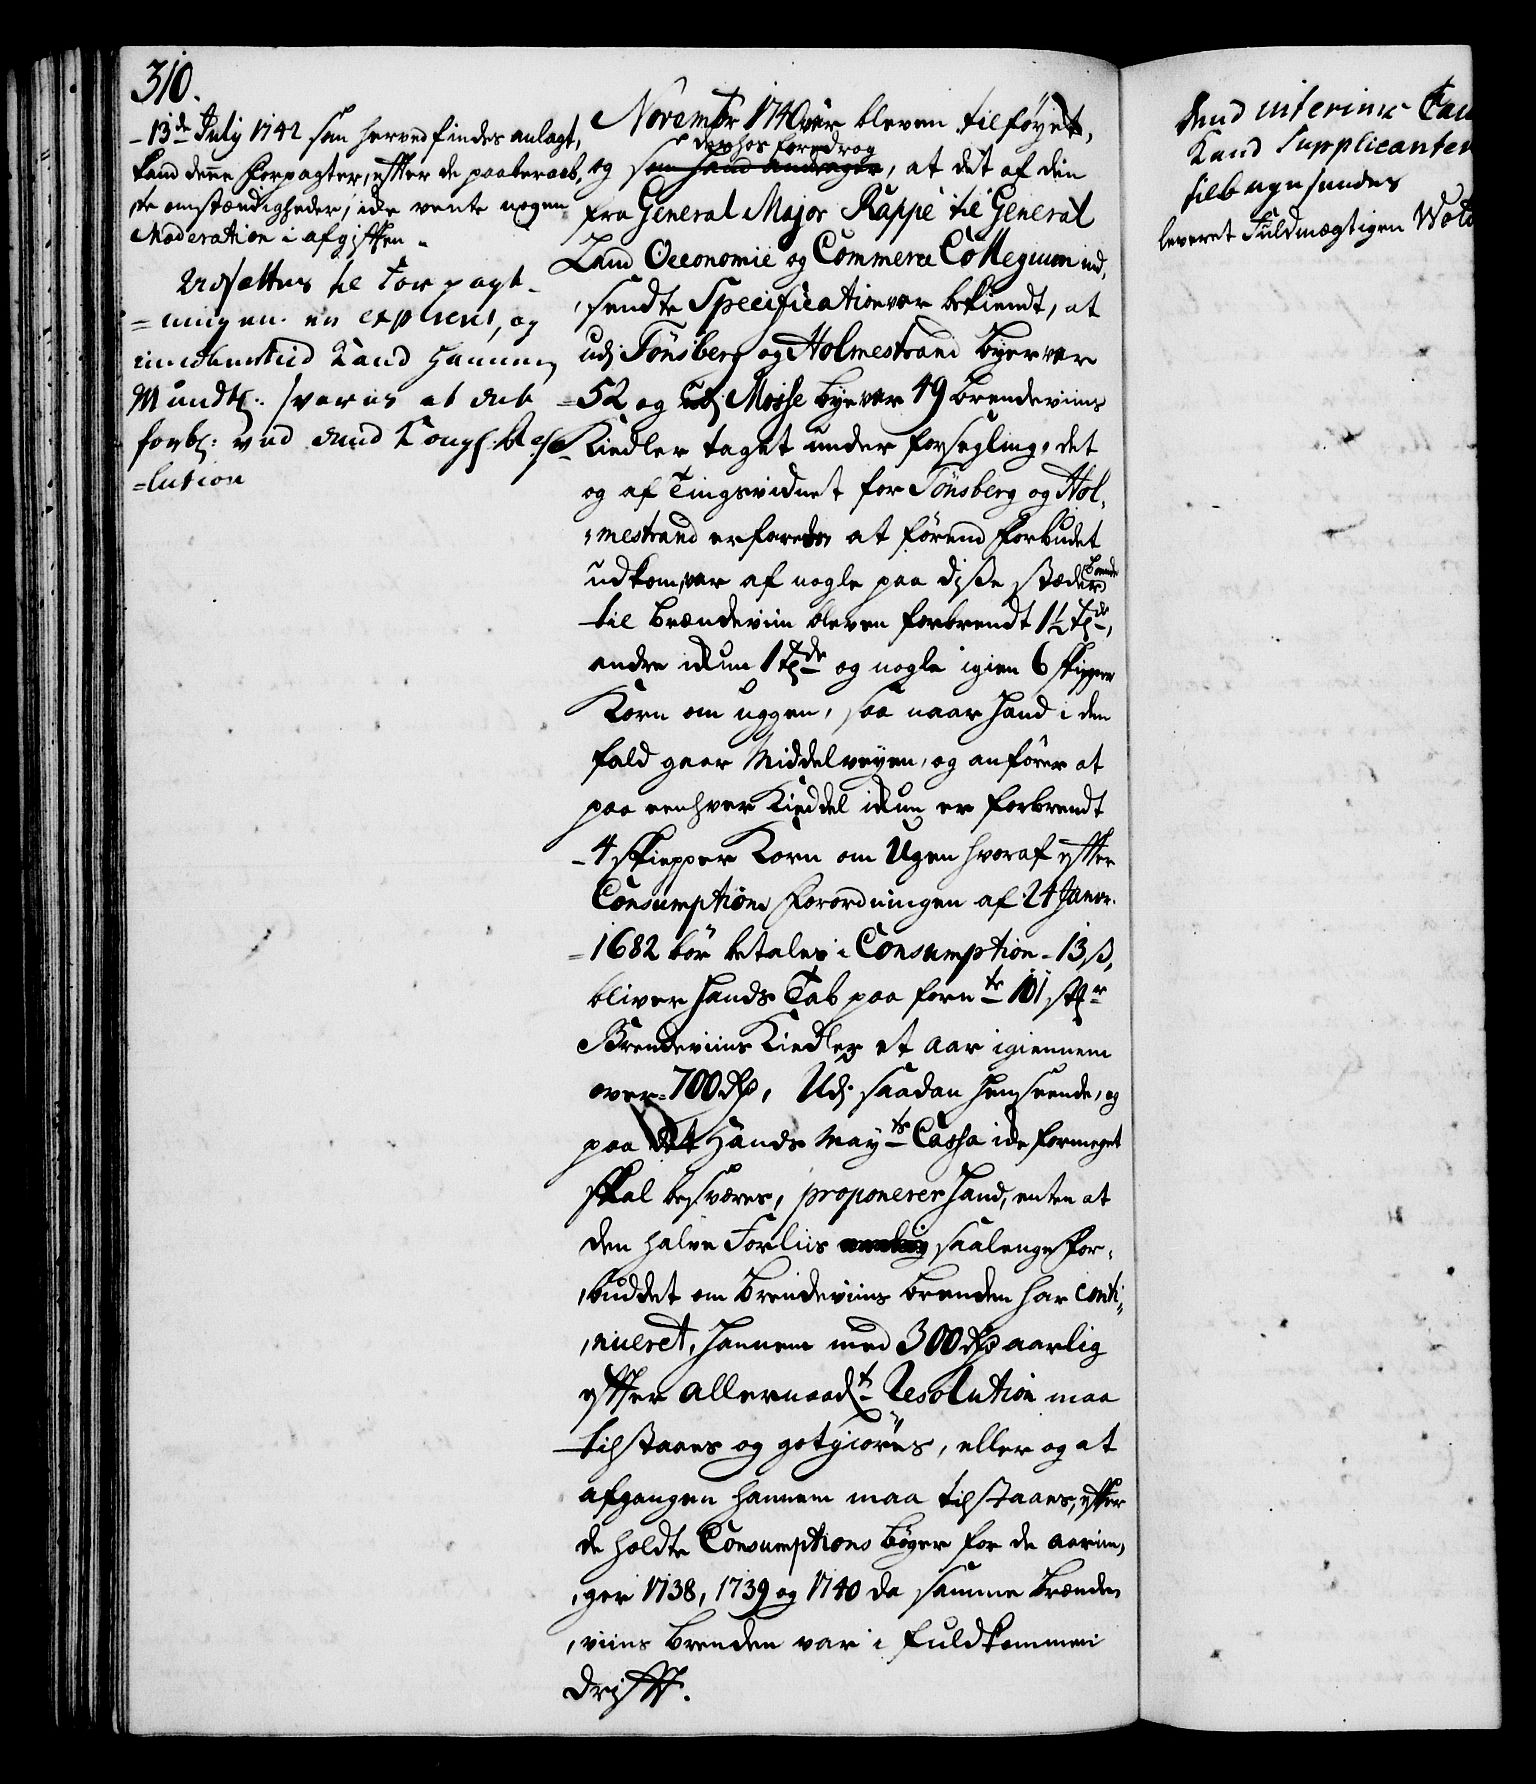 310.
- 13de July 1742 som herved findes anlagt,
kand denne Forpagter, efter de paaberaab-
te omstændigheder, icke vente nogen
Moderation i afgiften.
Udsættes til Forpagt-
=ningen er expireret, og
imidlertiid Kand Hannem
Mundtl: svares at det
forbl: ved dend Kongl: Reso-
=lution
Novembr 1740 var bleven tilföyet,
og som hand andrager, at det af den
derhos foredrog
fra General Major Rappe til General
Land Oeconomie og Commerce Collegium ind,
,sendte Specification var bekiendt, at
udj Tönsberg og Holmestrand byer var
52 og udj Mosse bye var 49 brendeviins
Kiedler taget under forsegling, det
og af Tingsvidnet for Tönsberg og Hol,
,mestrand erfares, at förend Forbudet
udkom, var af nogle paa disse stæder
til brændeviin bleven forbrendt 1½ tde,
andre ickun 1 tde og nogle igien 6 skipper
Korn om uggen, saa naar hand i den
fald gaar Middelveyen, og anförer at
paa eenhver Kieddel ickun er forbrendt
- 4 skiepper Korn om Ugen hvoraf efter
Consumptions Forordningen af 24 Janvr.
=1682 bör betales i Consumption - 13 s,
bliver hands Tab paa fornte 101 stkr
Brendeviins Kiedler et aar igiennem
over - 700 Rd, Udj saadan henseende, og
paa det Hands Mayts Cassa icke formeget
skal besværes, proponerer hand, enten at
den halve Forliis saalenge For,
,buddet om brendeviins brenden har conti,
,nueret, hannem med 300 Rd aarlig
efter allernaadt Resolution maa
tilstaaes og gotgiöres, eller og at
afgangen hannem maa tilstaaes, efter
de holdte Consumptions bøger for de aarin,
,ger 1738, 1739 og 1740 da samme brænde,
,viins brenden var i fuldkommen
Drifft.
dend interims
Kand Supplicanten
tilbagesendes
leveret Fuldmægtigen